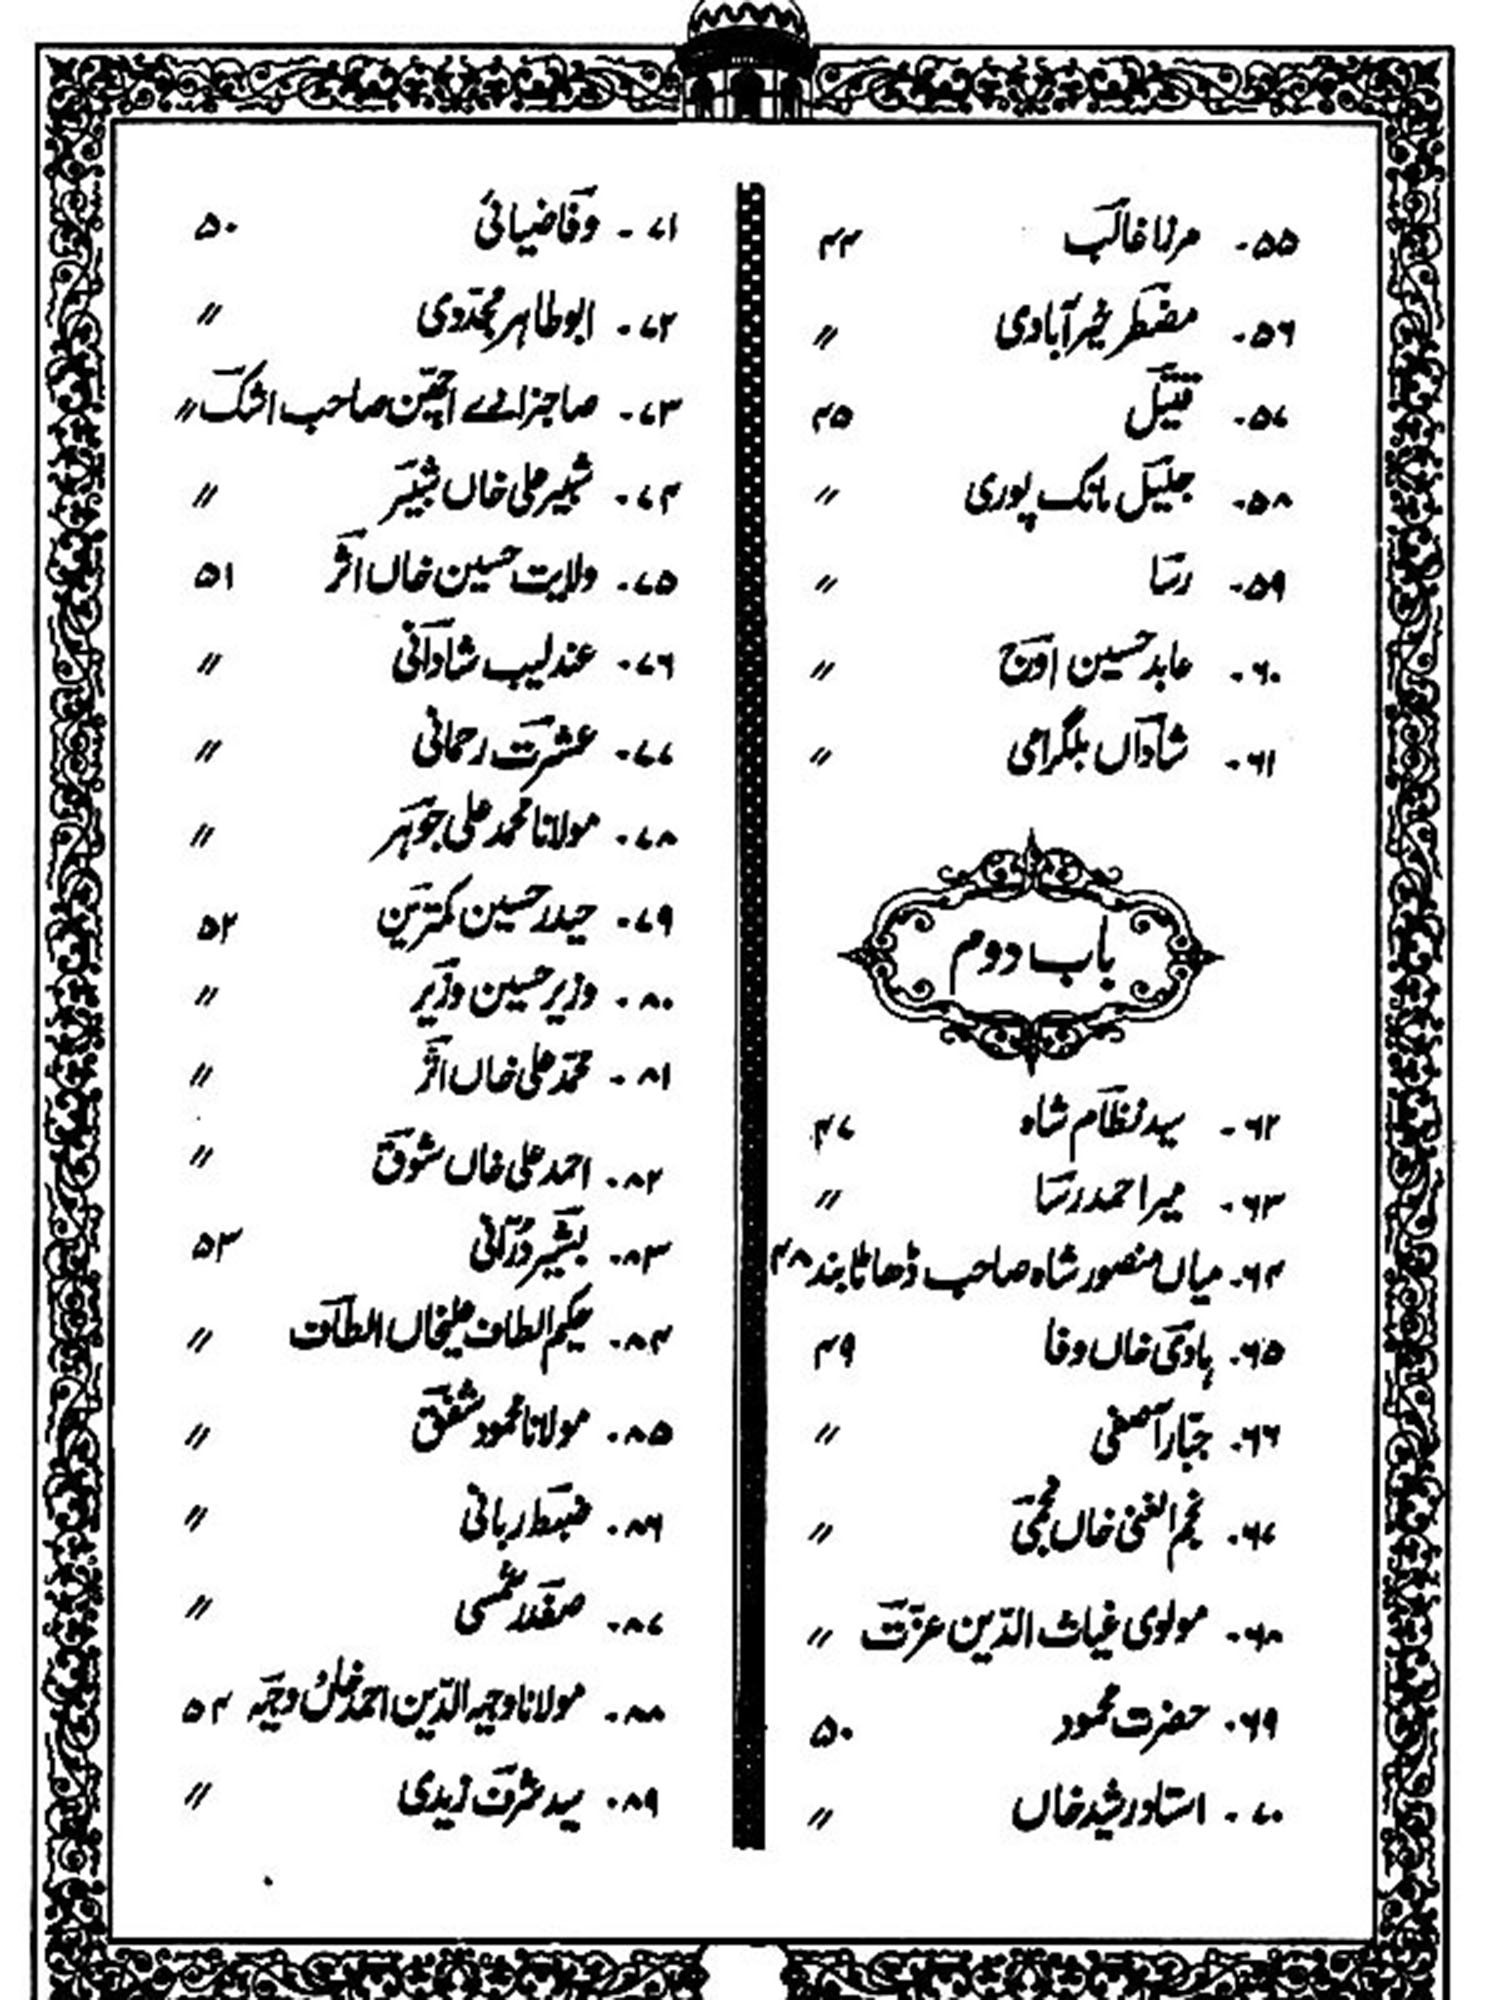 ۵۵- مرزا غالب ۴۴
۵۶- مضطر خیرآبادی 〃
۵۷- قتیل ۴۵
۵۸- جلیل مانک پوری 〃
۵۹- رسا 〃
۶۰- عابد حسین اوج 〃
۶۱- شاداں بلگرامی 〃
باب دوم
۶۲- سید نظام شاہ ۴۷
۶۳- میر احمد رسا 〃
۶۴- میاں منصور شاہ صاحب ڈھاٹا بند ۴۸
۶۵- ہادی خاں وفا ۴۹
۶۶- جبّار آصفی 〃
۶۷- نجم الغنی خاں نجمی 〃
۶۸- مولوی غیاث الدّین عزّت 〃
۶۹- حضرت محمود ۵۰
۷۰- استاد رشید خاں 〃
۷۱- وفا ضیائی ۵۰
۷۲- ابوطاہر مجدّدی 〃
۷۳- صاحبزادے اچھّن صاحب اشک 〃
۷۴- شبیر علی خاں شبیر 〃
۷۵- ولایت حسین خاں اثر ۵۱
۷۶- عندلیب شادانی 〃
۷۷- عشرت رحمانی 〃
۷۸- مولانا محمد علی جوہر 〃
۷۹- حیدر حسین کمترین ۵۲
۸۰- وزیر حسین وزیر 〃
۸۱- محمد علی خاں اثر 〃
۸۲- احمد علی خاں شوق 〃
۸۳- بشیر دُرّانی ۵۳
۸۴- حکیم الطاف علیخاں الطاف 〃
۸۵- مولانا محمود شفق 〃
۸۶- ضبط ربانی 〃
۸۷- صفدر شمسی 〃
۸۸- مولانا وجیہ الدّین احمد خاں وجیہ ۵۴
۸۹- سید شرف زیدی 〃